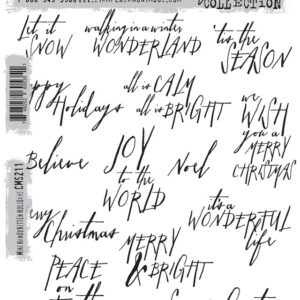 COLLECTION
Let it
SNOW
walking in a winter
WONDERLAND
'tis the
SEASON
ppy
Holidays
all is CALM
all is BRIGHT
we
WISH
you a
MERRY
CHRISTMAS
Believe
JOY
to the
WORLD
Noel
it's a
WONDERFUL
life
erry
Christmas
MERRY
& BRIGHT
PEACE
on
MINI HANDWRITTEN HOLIDAYS CMS211